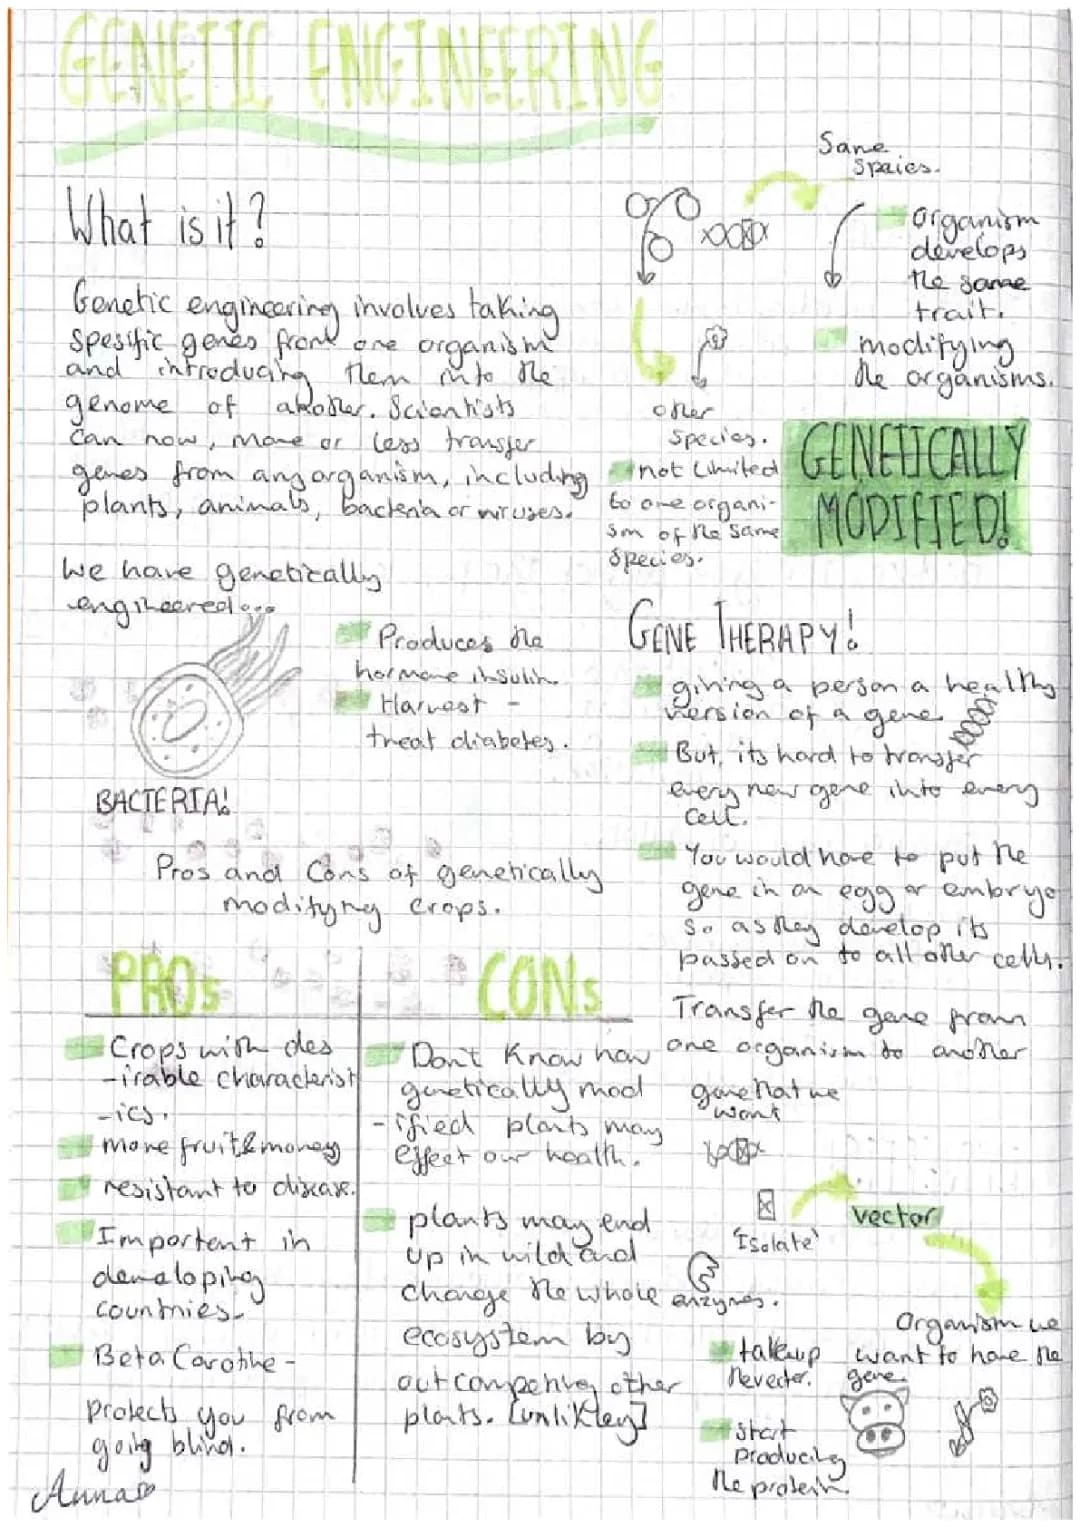 GENETIC ENGINEERING
What is it?
Genetic engineering involves taking
spesific genes from one organism
and introducing them into the
genome of another. Scientists
can now, more or less transfer
genes from any organism, including
plants, animals, bacteria or viruses.
We have genetically
engineered...
Produces the
hormone insulin.
Harvest -
treat diabetes.
BACTERIA!
Same
Speies.
organism
develops
the same
trait.
modifying
the organisms.
other
species.
not limited
to one organi-
sm of the same
species.
GENETICALLY
MODIFIED!
GENE THERAPY!
giving a person a healthy
version of a gene
But, its hard to transfer
every new gene into every
cell.
You would have to put the
gene in an egg or embryo
so as they develop its
passed on to all other cells.
Pros and Cons of genetically
modifyng crops.
PROs
Crops with des
-irable characterist
-ics.
more fruit & money
resistant to disease.
Importent in
developing
countries
Beta Carotine -
protects you from
going blind.
CONs
Don't know how
genetically mod
-ified plants may
effect our health.
plants may end
up in wild and
change the whole
ecosystem by
outcompeting other
plants. [unlikley]
Transfer the gene from
one organism to another
gene that we
want
'Isolate'
enzymes.
vector
Organism we
want to have the
gene.
take up
the vector.
start
producing
the protein.
Anna